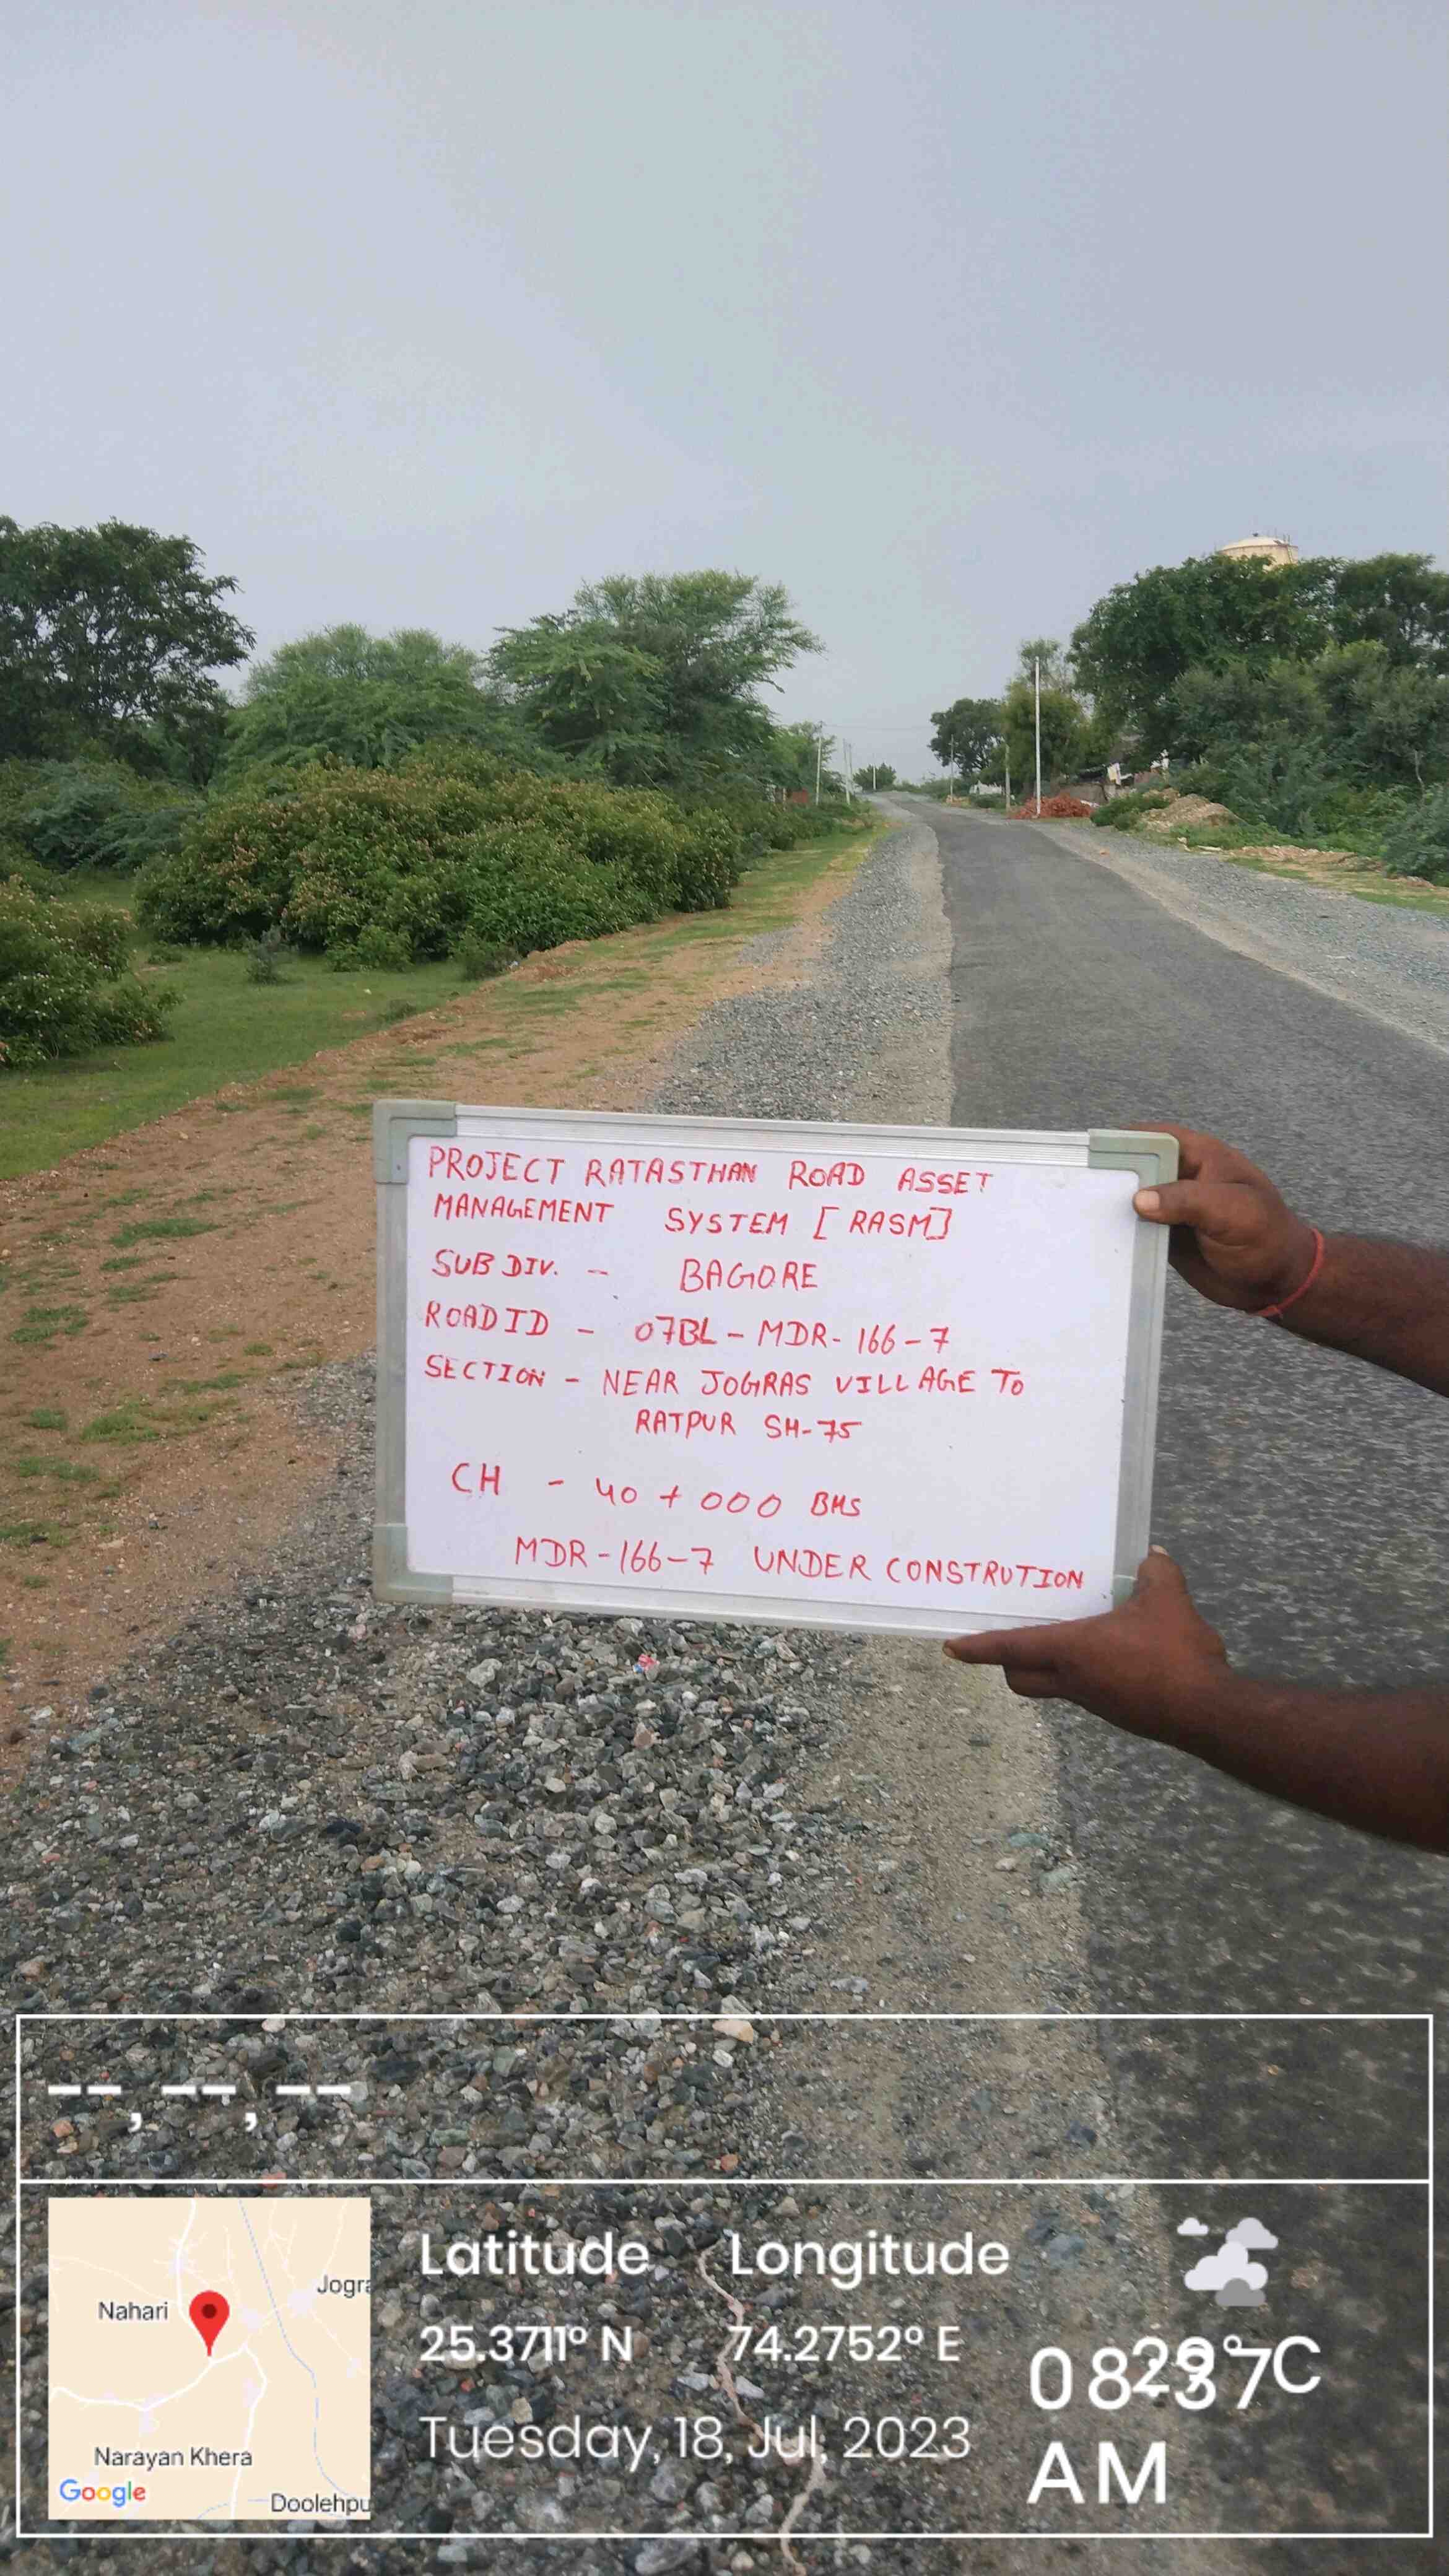 PROJECT RATASTHAN ROAD ASSET
MANAGEMENT SYSTEM [RASM]
SUB DIV. - BAGORE
ROAD ID - 07BL-MDR-166-7
SECTION - NEAR JOGRAS VILLAGE TO
RATPUR SH-75
CH - 40 + 000 BHS
MDR-166-7 UNDER CONSTRUTION
--, --, --
Latitude Longitude
25.3711° N 74.2752° E
Tuesday, 18, Jul, 2023
AM
Jogra
Nahari
Narayan Khera
Google
Doolehpu